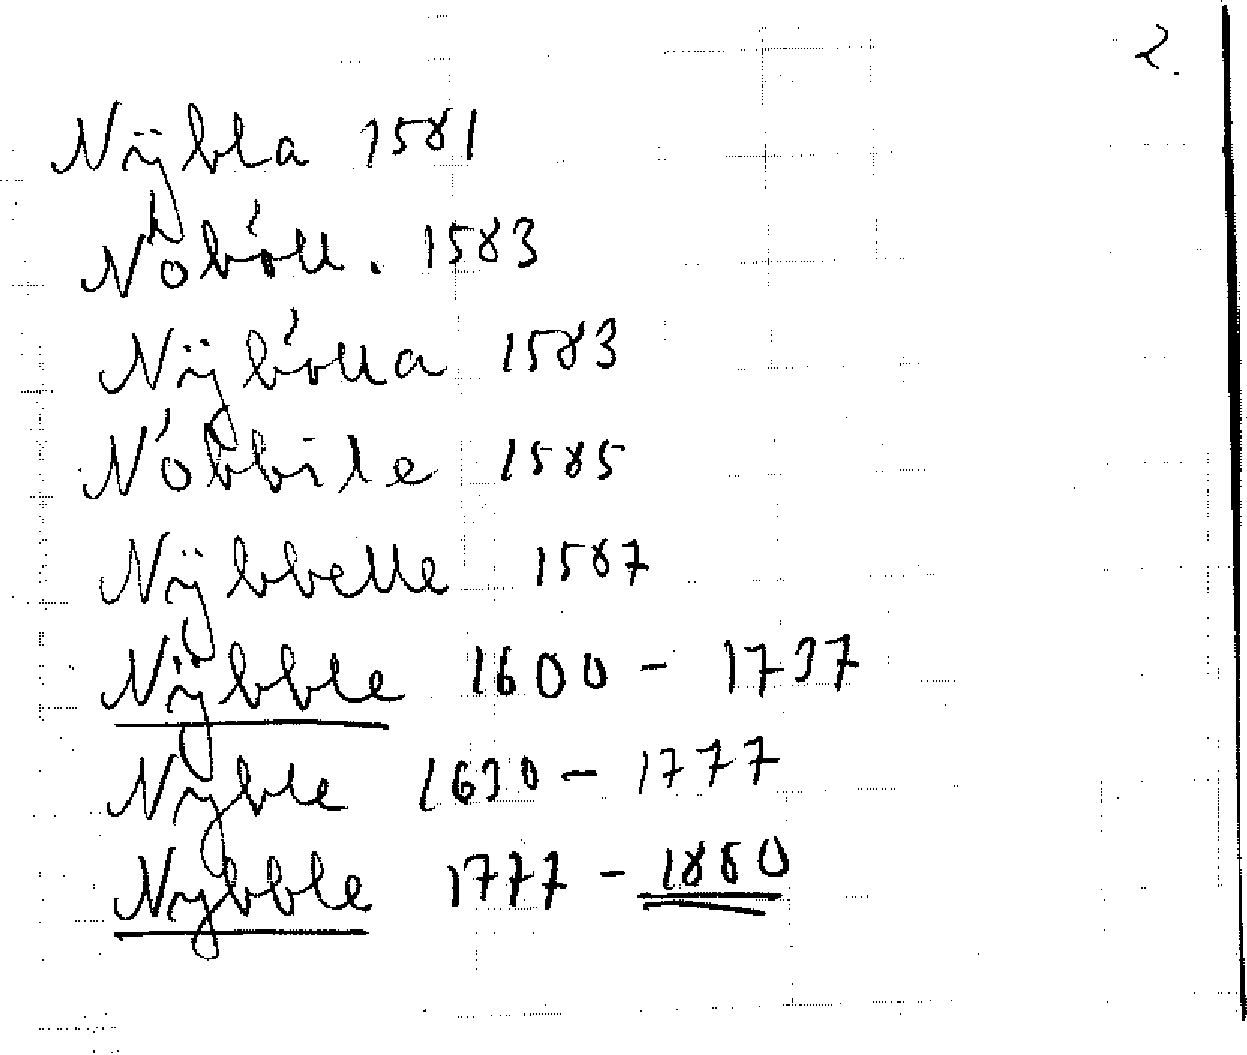 2.
Nÿbla 1581
Nóbóll. 1583
Nÿbólla 1583
Nóbbile 1585
Nÿbbelle 1587
Nÿbble 1600 - 1737
Nyble 1630 - 1777
Nybble 1777 - 1880